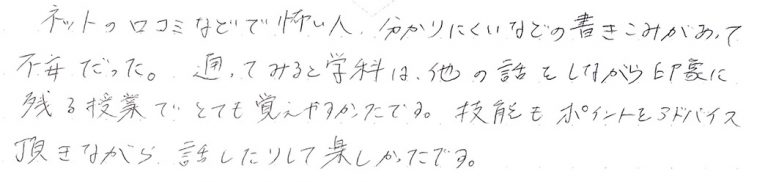 ネットの口コミなどで怖い人、分かりにくいなどの書きこみがあって
不安だった。通ってみると学科は、他の話をしながら印象に
残る授業でとても覚えやすかったです。技能もポイントをアドバイス
頂きながら、話したりして楽しかったです。